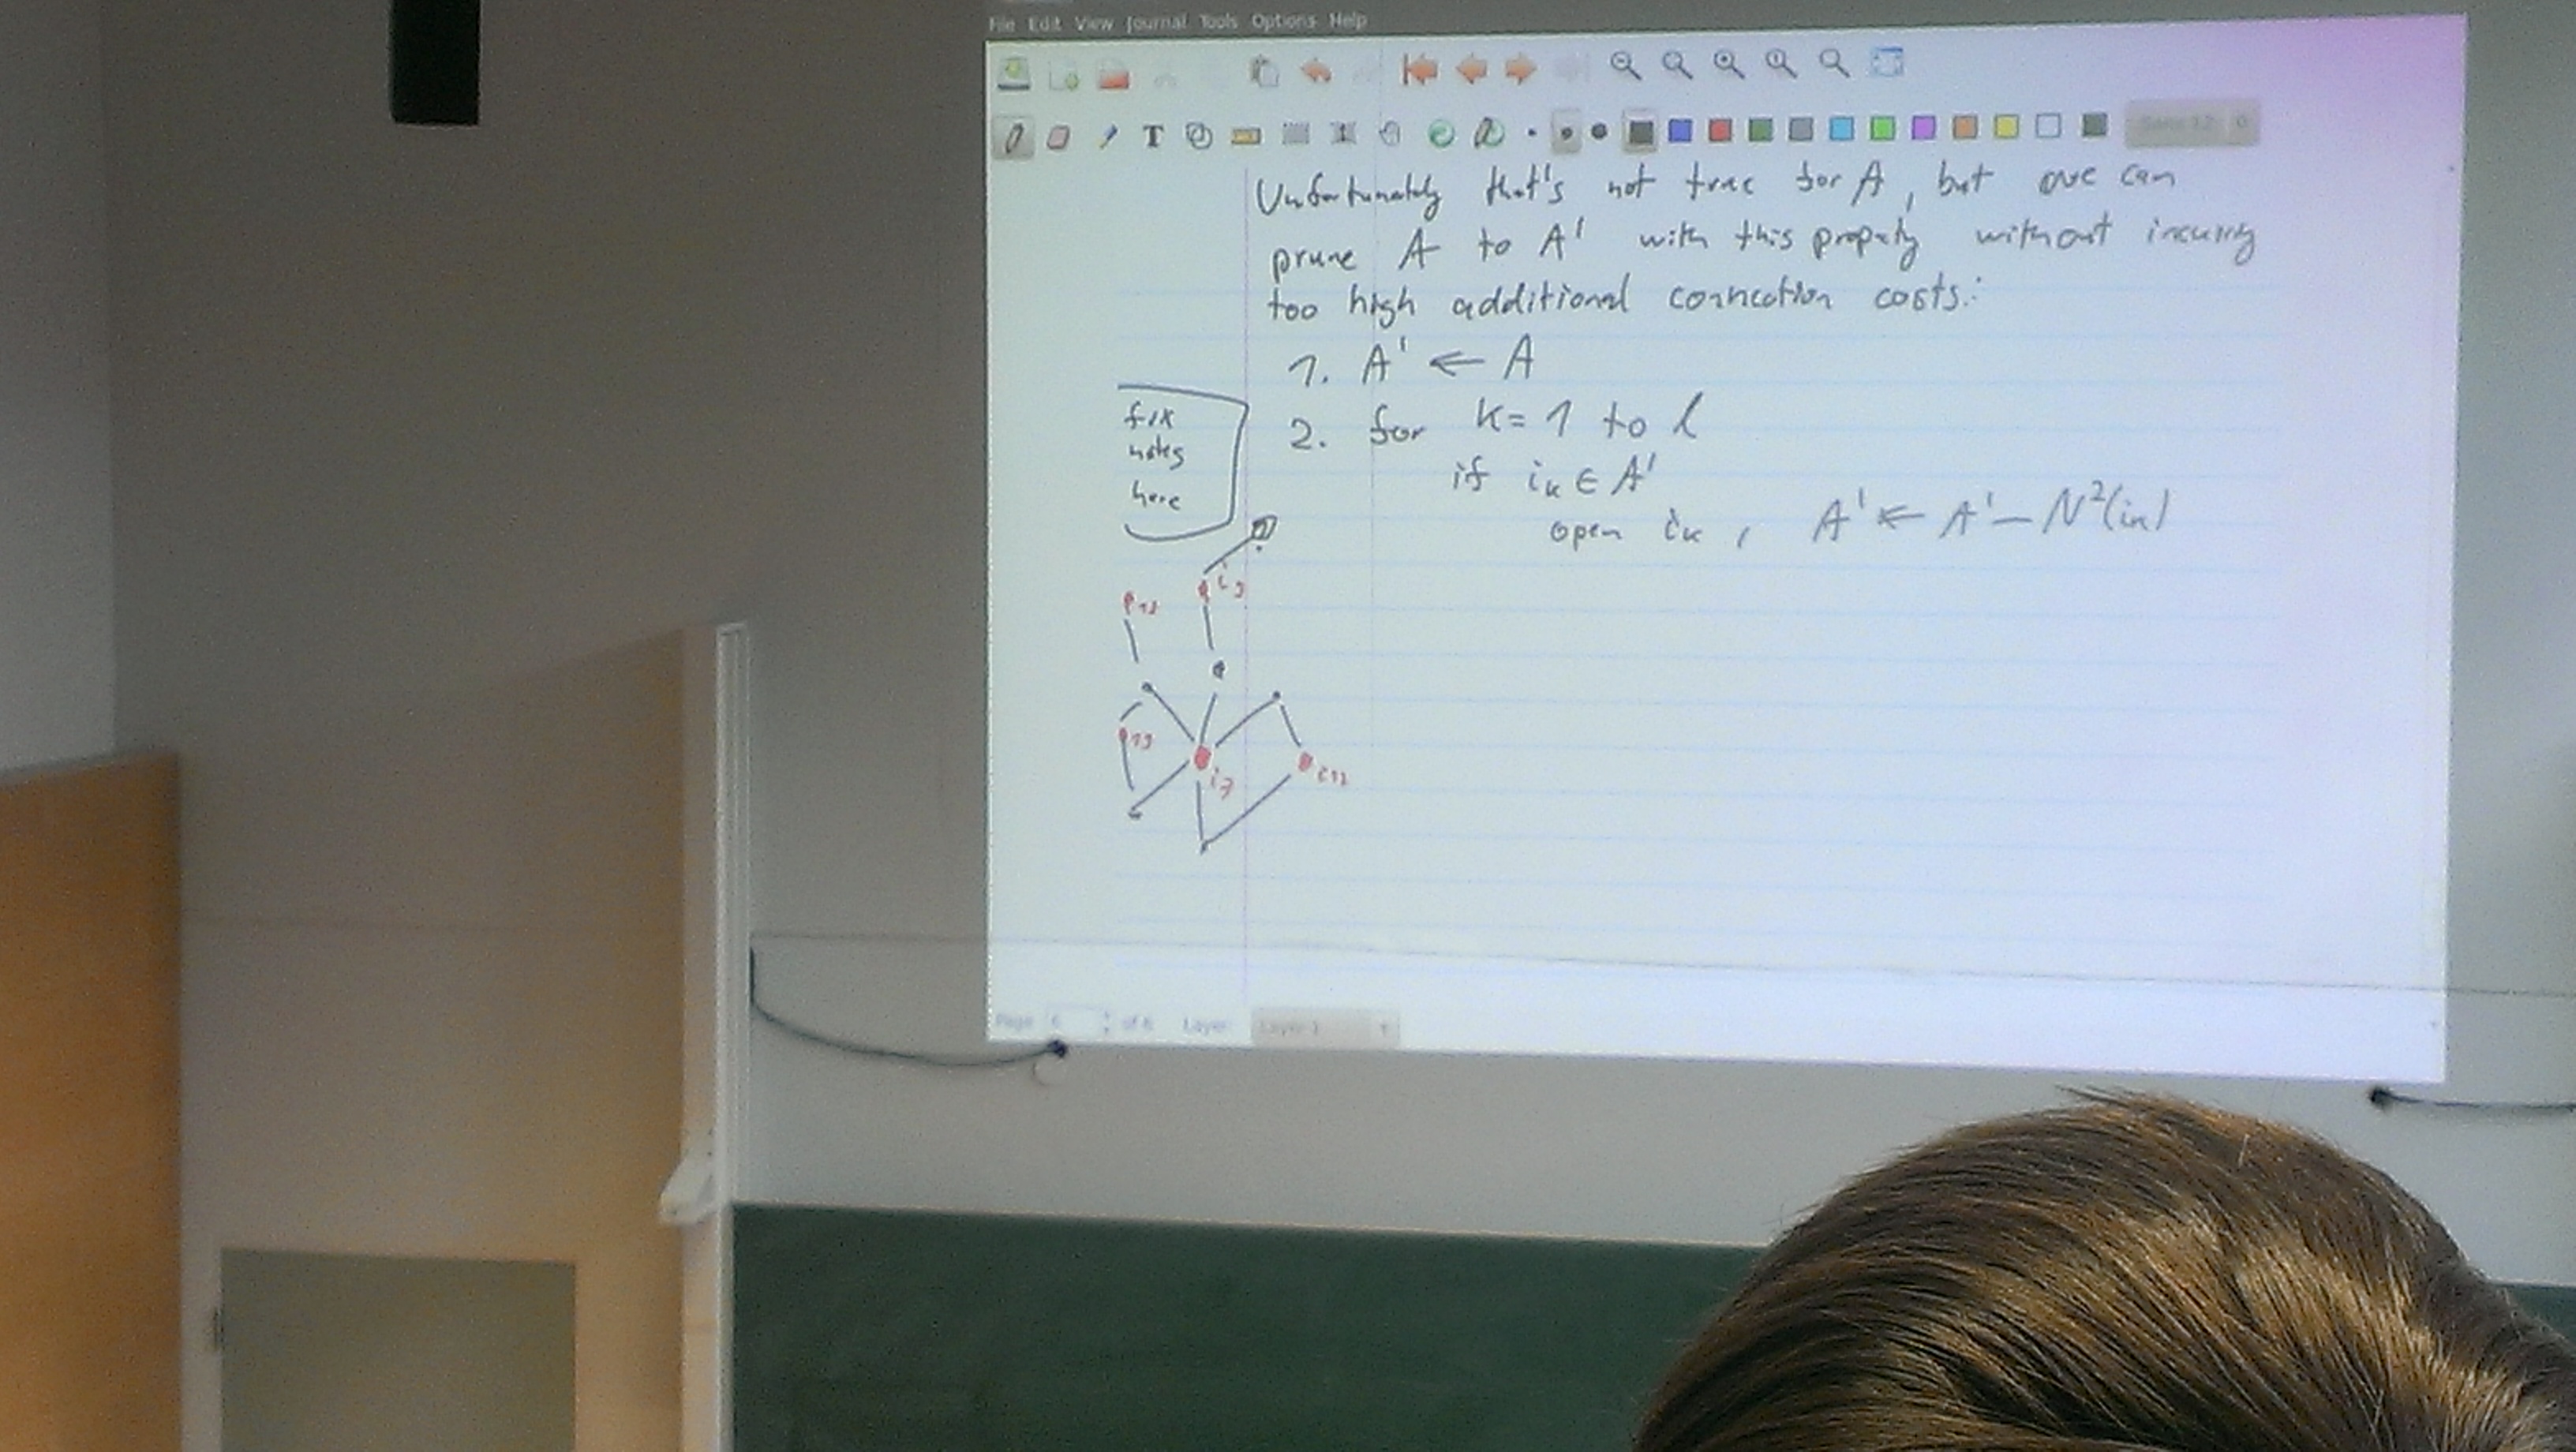 File Edit View Journal Tools Options Help
T
Unfortunately that's not true for A, but one can
prune A to A' with this property without incurring
too high additional connection costs:
1. A' ← A
2. for k = 1 to l
if iₖ ∈ A'
open iₖ, A' ← A' — N²(iₖ)
fix
notes
here
i₉
13
19
i₇
i₁₂
Page 6 of 6 Layer: Layer 1